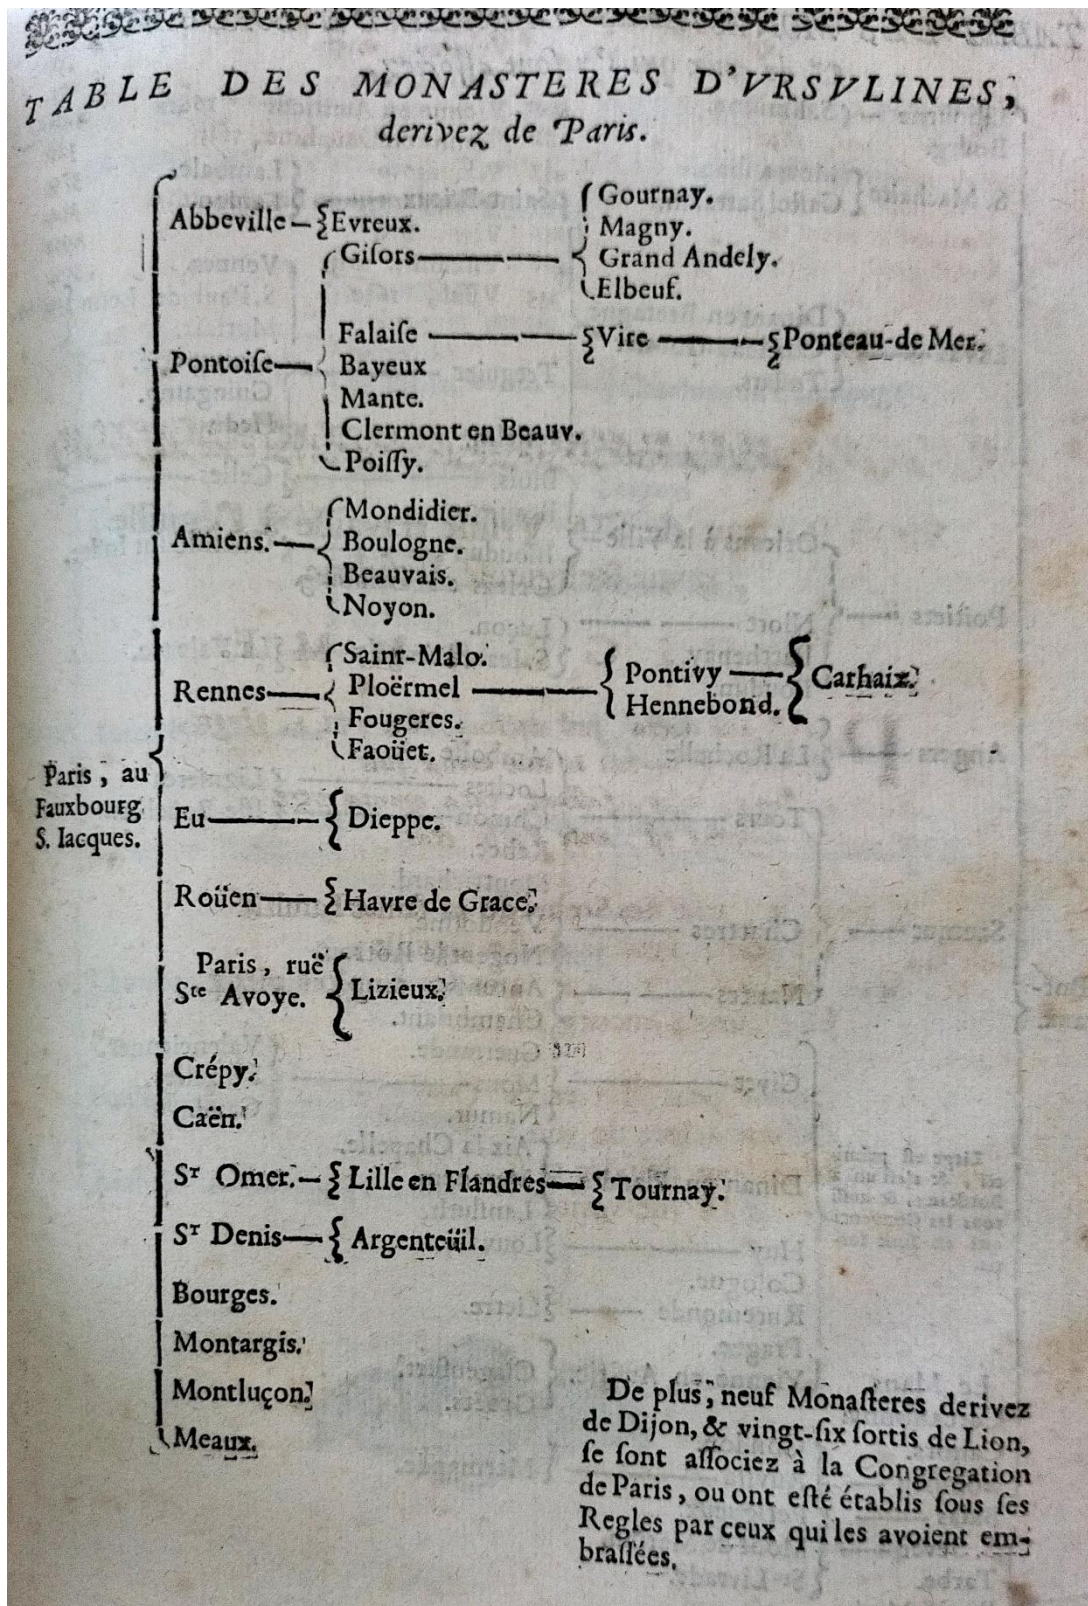 TABLE DES MONASTERES D'VRSVLINES,
derivez de Paris.
Abbeville — Evreux.
Pontoise —
Gisors —
Gournay.
Magny.
Grand Andely.
Elbeuf.
Falaise — Vire — Ponteau-de Mer.
Bayeux
Mante.
Clermont en Beauv.
Poissy.
Amiens. —
Mondidier.
Boulogne.
Beauvais.
Noyon.
Rennes —
Saint-Malo.
Ploërmel —
Pontivy — Carhaix.
Hennebond.
Fougeres.
Faoüet.
Paris, au
Fauxbourg
S. Iacques.
Eu — Dieppe.
Roüen — Havre de Grace.
Paris, ruë
Ste Avoye. Lizieux.
Crépy.
Caën.
St Omer. — Lille en Flandres — Tournay.
St Denis — Argenteüil.
Bourges.
Montargis.
Montluçon.
Meaux.
De plus, neuf Monasteres derivez
de Dijon, & vingt-six sortis de Lion,
se sont associez à la Congregation
de Paris, ou ont esté établis sous ses
Regles par ceux qui les avoient em-
brassées.